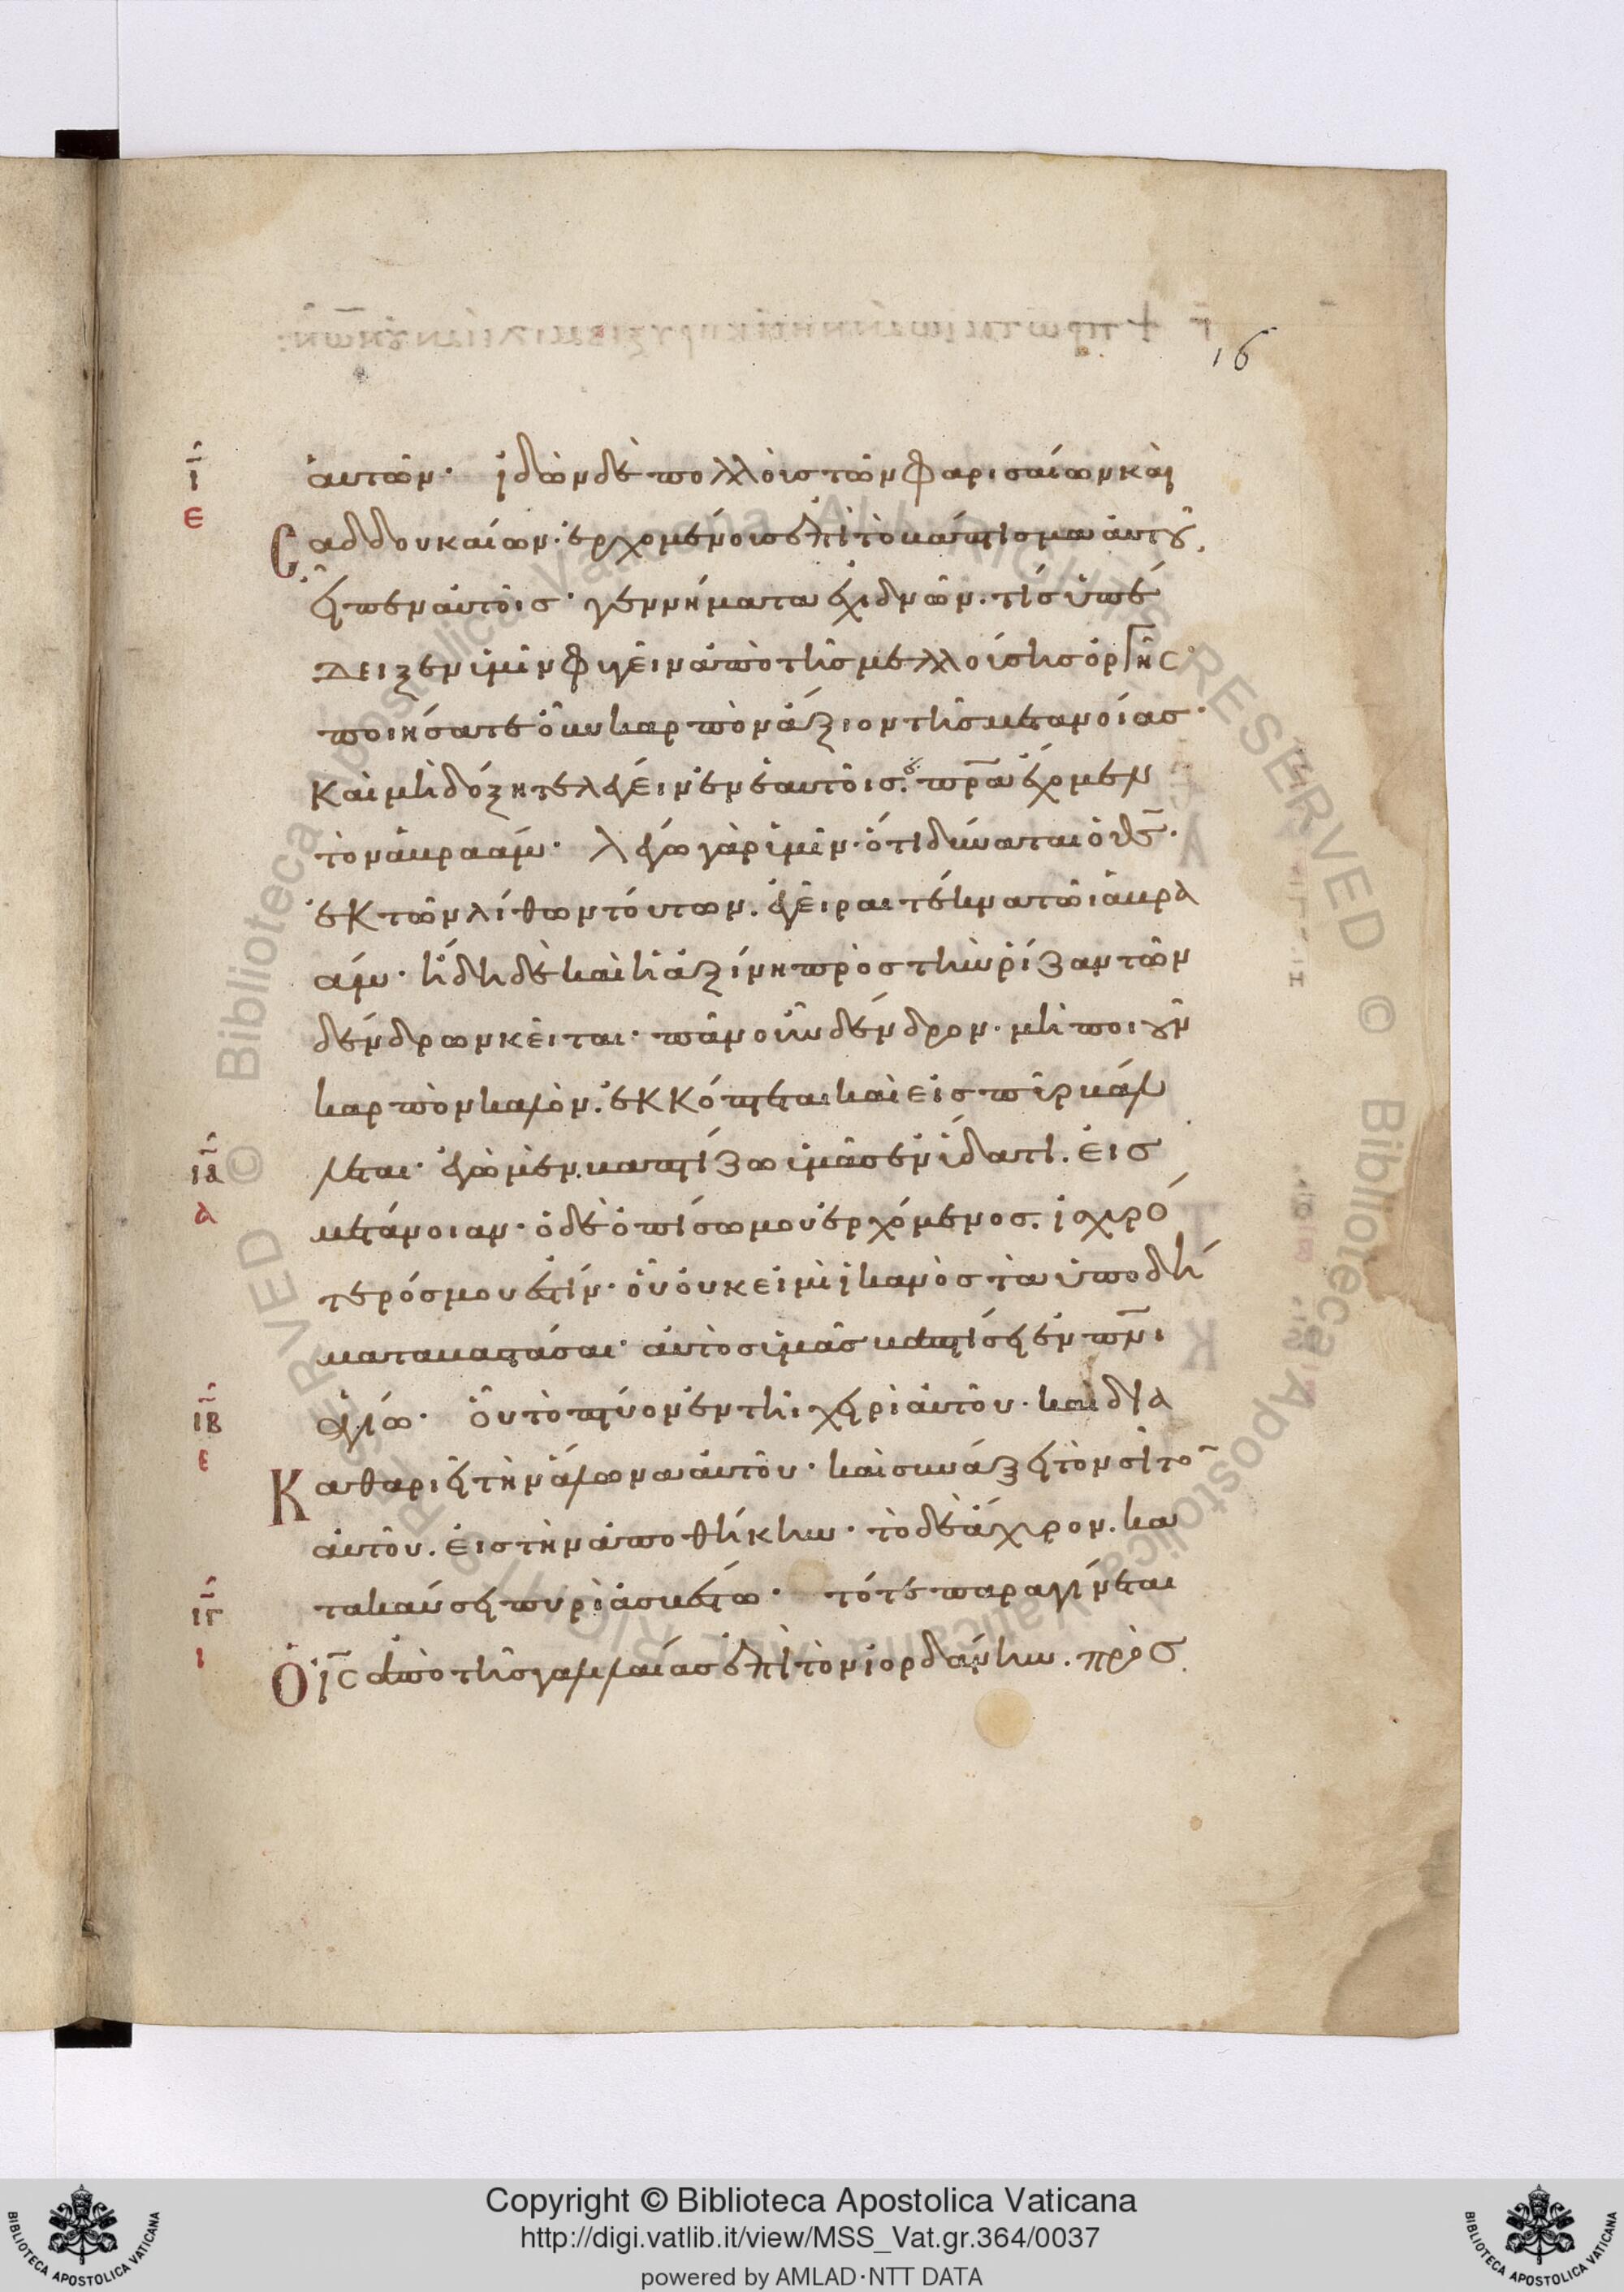 16
ῑ αὐτῶν· ἰδὼν δὲ πολλοὺς τῶν φαρισαίων καὶ
ε Σαδδουκαίων· ἐρχομένους ἐπὶ τὸ βάπτισμα αὐτοῦ,
εἶπεν αὐτοῖς· γεννήματα ἐχιδνῶν. τίς ὑπέ
δειξεν ὑμῖν φυγεῖν ἀπὸ τῆς μελλούσης ὀργῆς·
ποιήσατε οὖν καρπὸν ἄξιον τῆς μετανοίας·
καὶ μὴ δόξητε λέγειν ἐν ἑαυτοῖς. πρ̅α ἔχομεν
τὸν ἀβραάμ· λέγω γὰρ ὑμῖν· ὅτι δύναται ὁ θς̅·
ἐκ τῶν λίθων τούτων. ἐγεῖραι τέκνα τῶ ἀβρα
άμ· ἤδη δὲ καὶ ἡ ἀξίνη πρὸς τὴν ῥίζαν τῶν
δένδρων κεῖται· πᾶν οὖν δένδρον· μὴ ποιοῦν
καρπὸν καλὸν. ἐκκόπτεται καὶ εἰς πῦρ βάλ
ια̅ λεται· ἐγὼ μὲν βαπτίζω ὑμᾶς ἐν ὕδατι. εἰς
α μετάνοιαν· ὁ δὲ ὀπίσω μου ἐρχόμενος. ἰσχυρό
τερός μου ἐστίν· οὗ οὐκ εἰμὶ ἱκανὸς τὰ ὑποδή
ματα βαστάσαι· αὐτὸς ὑμᾶς βαπτίσει ἐν πν̅ι
ιβ̅ ἁγίω· οὗ τὸ πτύον ἐν τῆι χειρὶ αὐτοῦ· καὶ δια
ε Καθαριεῖ τὴν ἅλωνα αὐτοῦ· καὶ συνάξει τὸν σῖτο̅
αὐτοῦ. εἰς τὴν ἀποθήκην· τὸ δὲ ἄχυρον. κα
ιγ̅ τακαύσει πυρὶ ἀσβέστω· τότε παραγίνεται
ι Ὁ ἰς̅ ἀπὸ τῆς γαλιλαίας ἐπὶ τὸν ἰορδάνην. πρὸς
Copyright © Biblioteca Apostolica Vaticana
http://digi.vatlib.it/view/MSS_Vat.gr.364/0037
powered by AMLAD·NTT DATA
BIBLIOTECA APOSTOLICA VATICANA
BIBLIOTECA APOSTOLICA VATICANA